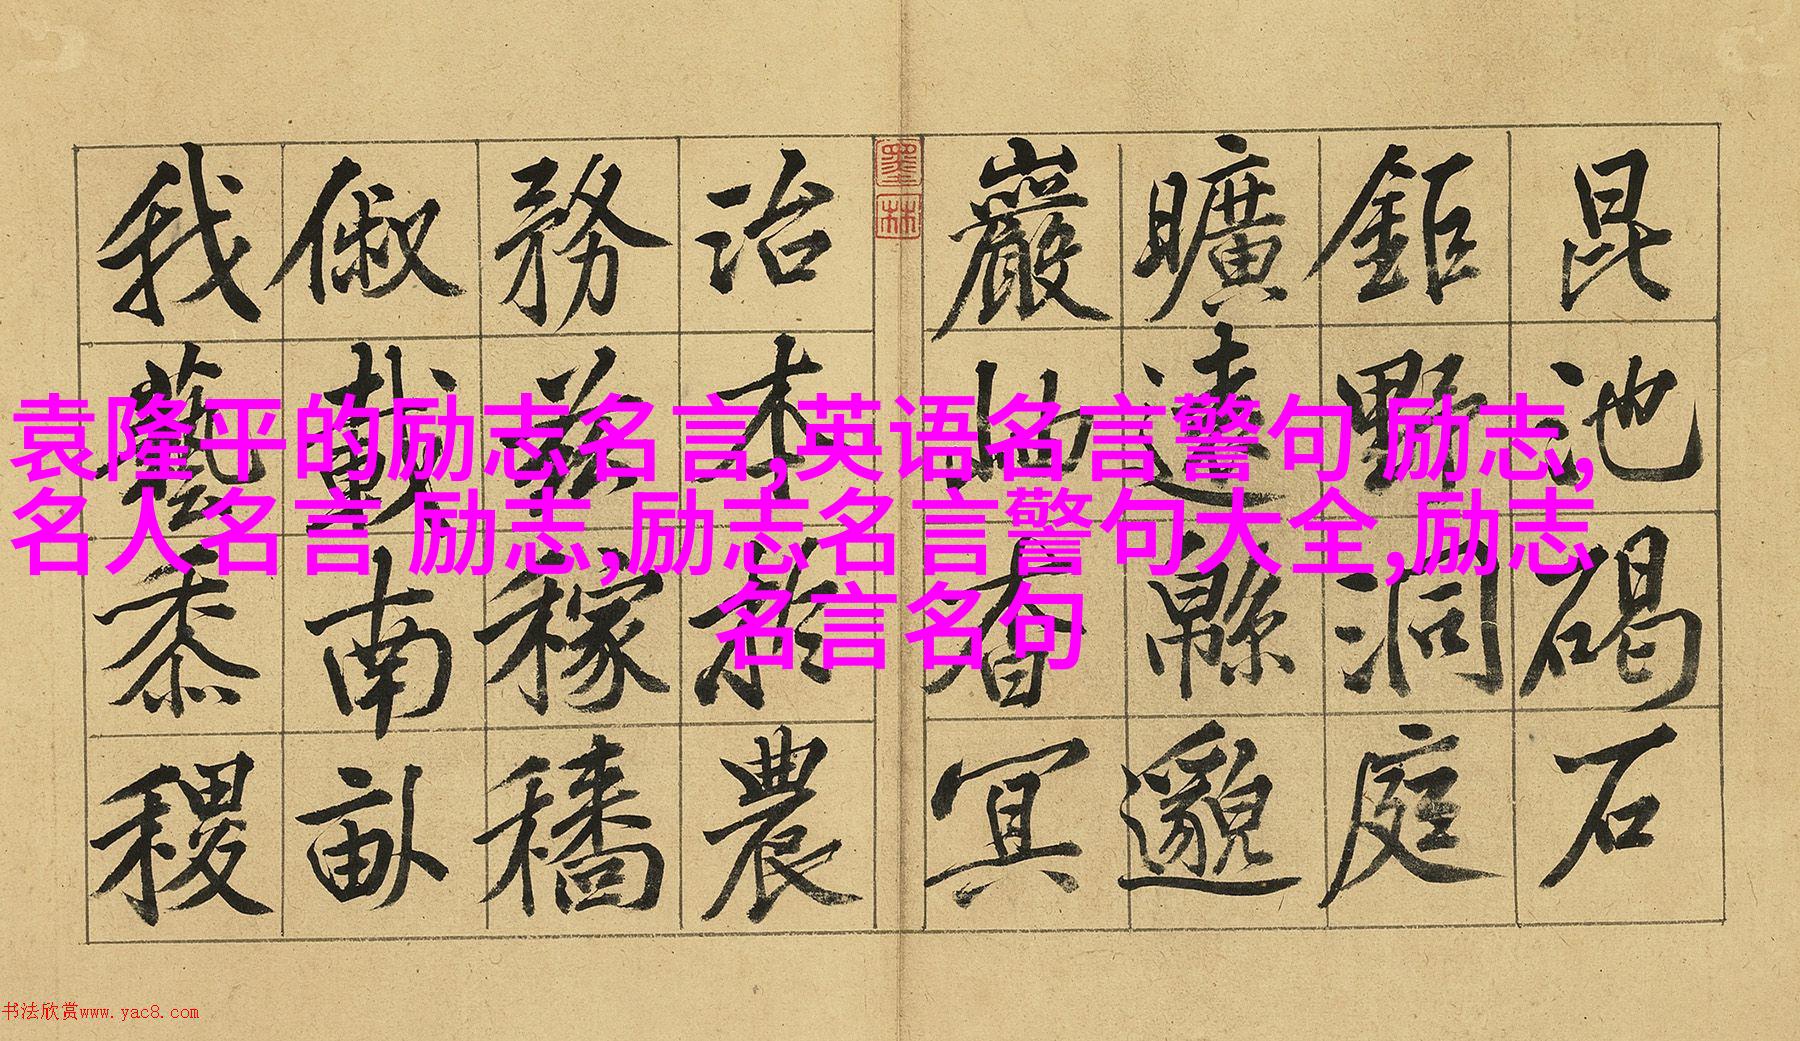 昆池碣石
鉅野洞庭
曠遠緜邈
巖岫杳冥
墨林
治本於農
務茲稼穡
俶載南畝
我藝黍稷
袁隆平的励志名言,英语名言警句 励志,
名人名言 励志,励志名言警句大全,励志
名言名句
书法欣赏www.yac8.com